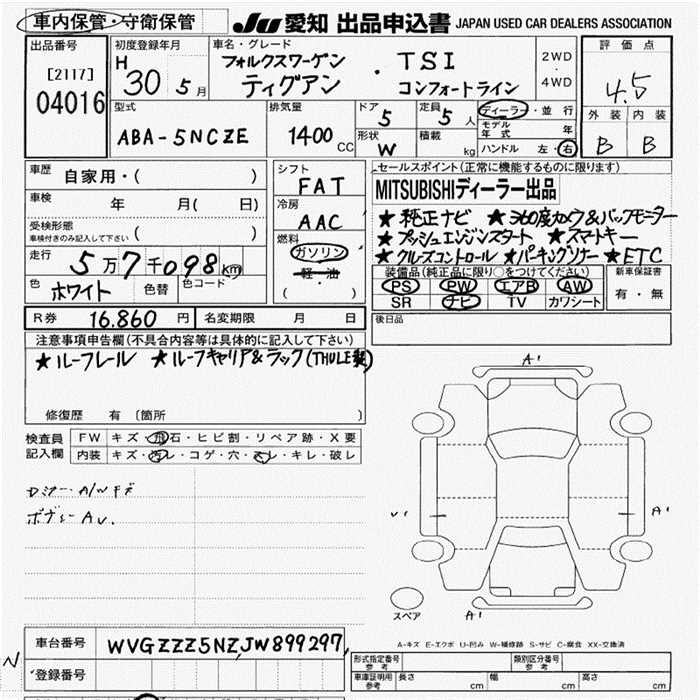 車内保管・守衛保管
JU 愛知 出品申込書 JAPAN USED CAR DEALERS ASSOCIATION
出品番号
[2117]
04016
初度登録年月
H 30 5 月
車名・グレード
フォルクスワーゲン ・ TSI
ティグアン コンフォートライン
2WD
・
4WD
評価点
4.5
外装 内装
B B
型式
ABA-5NCZE
排気量
1400 CC
ドア
5
定員
5 人
形状
W
積載
kg
ディーラー・並行
モデル年式 年
ハンドル 左・右
車歴 自家用・( )
車検 年 月( 日)
受検形態
車検付きのみ記入して下さい ( )
走行 5万7千098km
色 ホワイト 色替 色コード
シフト
FAT
冷房
AAC
燃料
ガソリン
軽・油
( )
セールスポイント(正常に機能するものに限ります)
MITSUBISHIディーラー出品
★純正ナビ ★360度カメラ&バックモーター
★プッシュエンジンスタート ★スマートキー
★クルーズコントロール ★パーキングソナー ★ETC
装備品(純正品に限り○をつけてください)
PS PW エアB AW
SR ナビ TV カワシート
新車保証書
有・無
R券 16.860 円 名変期限 月 日
後日品
注意事項申告欄(不具合内容等は具体的に記入して下さい)
★ルーフレール ★ルーフキャリア&ラック(THULE製)
修復歴 有 〔箇所 〕
検査員
記入欄
FW キズ・飛石・ヒビ割・リペア跡・X要
内装 キズ・汚レ・コゲ・穴・スレ・キレ・破レ
A/Wキズ
ボディーAU.
A'
V'
A'
A'
スペア
A-キズ E-エクボ U-凹み W-補修跡 S-サビ C-腐食 XX-交換済
車台番号 WVGZZZ5NZJW899297
N
登録番号
形式指定番号
参考
類別区分番号
参考
車庫証明用
参考
長さ cm 幅 cm 高さ cm